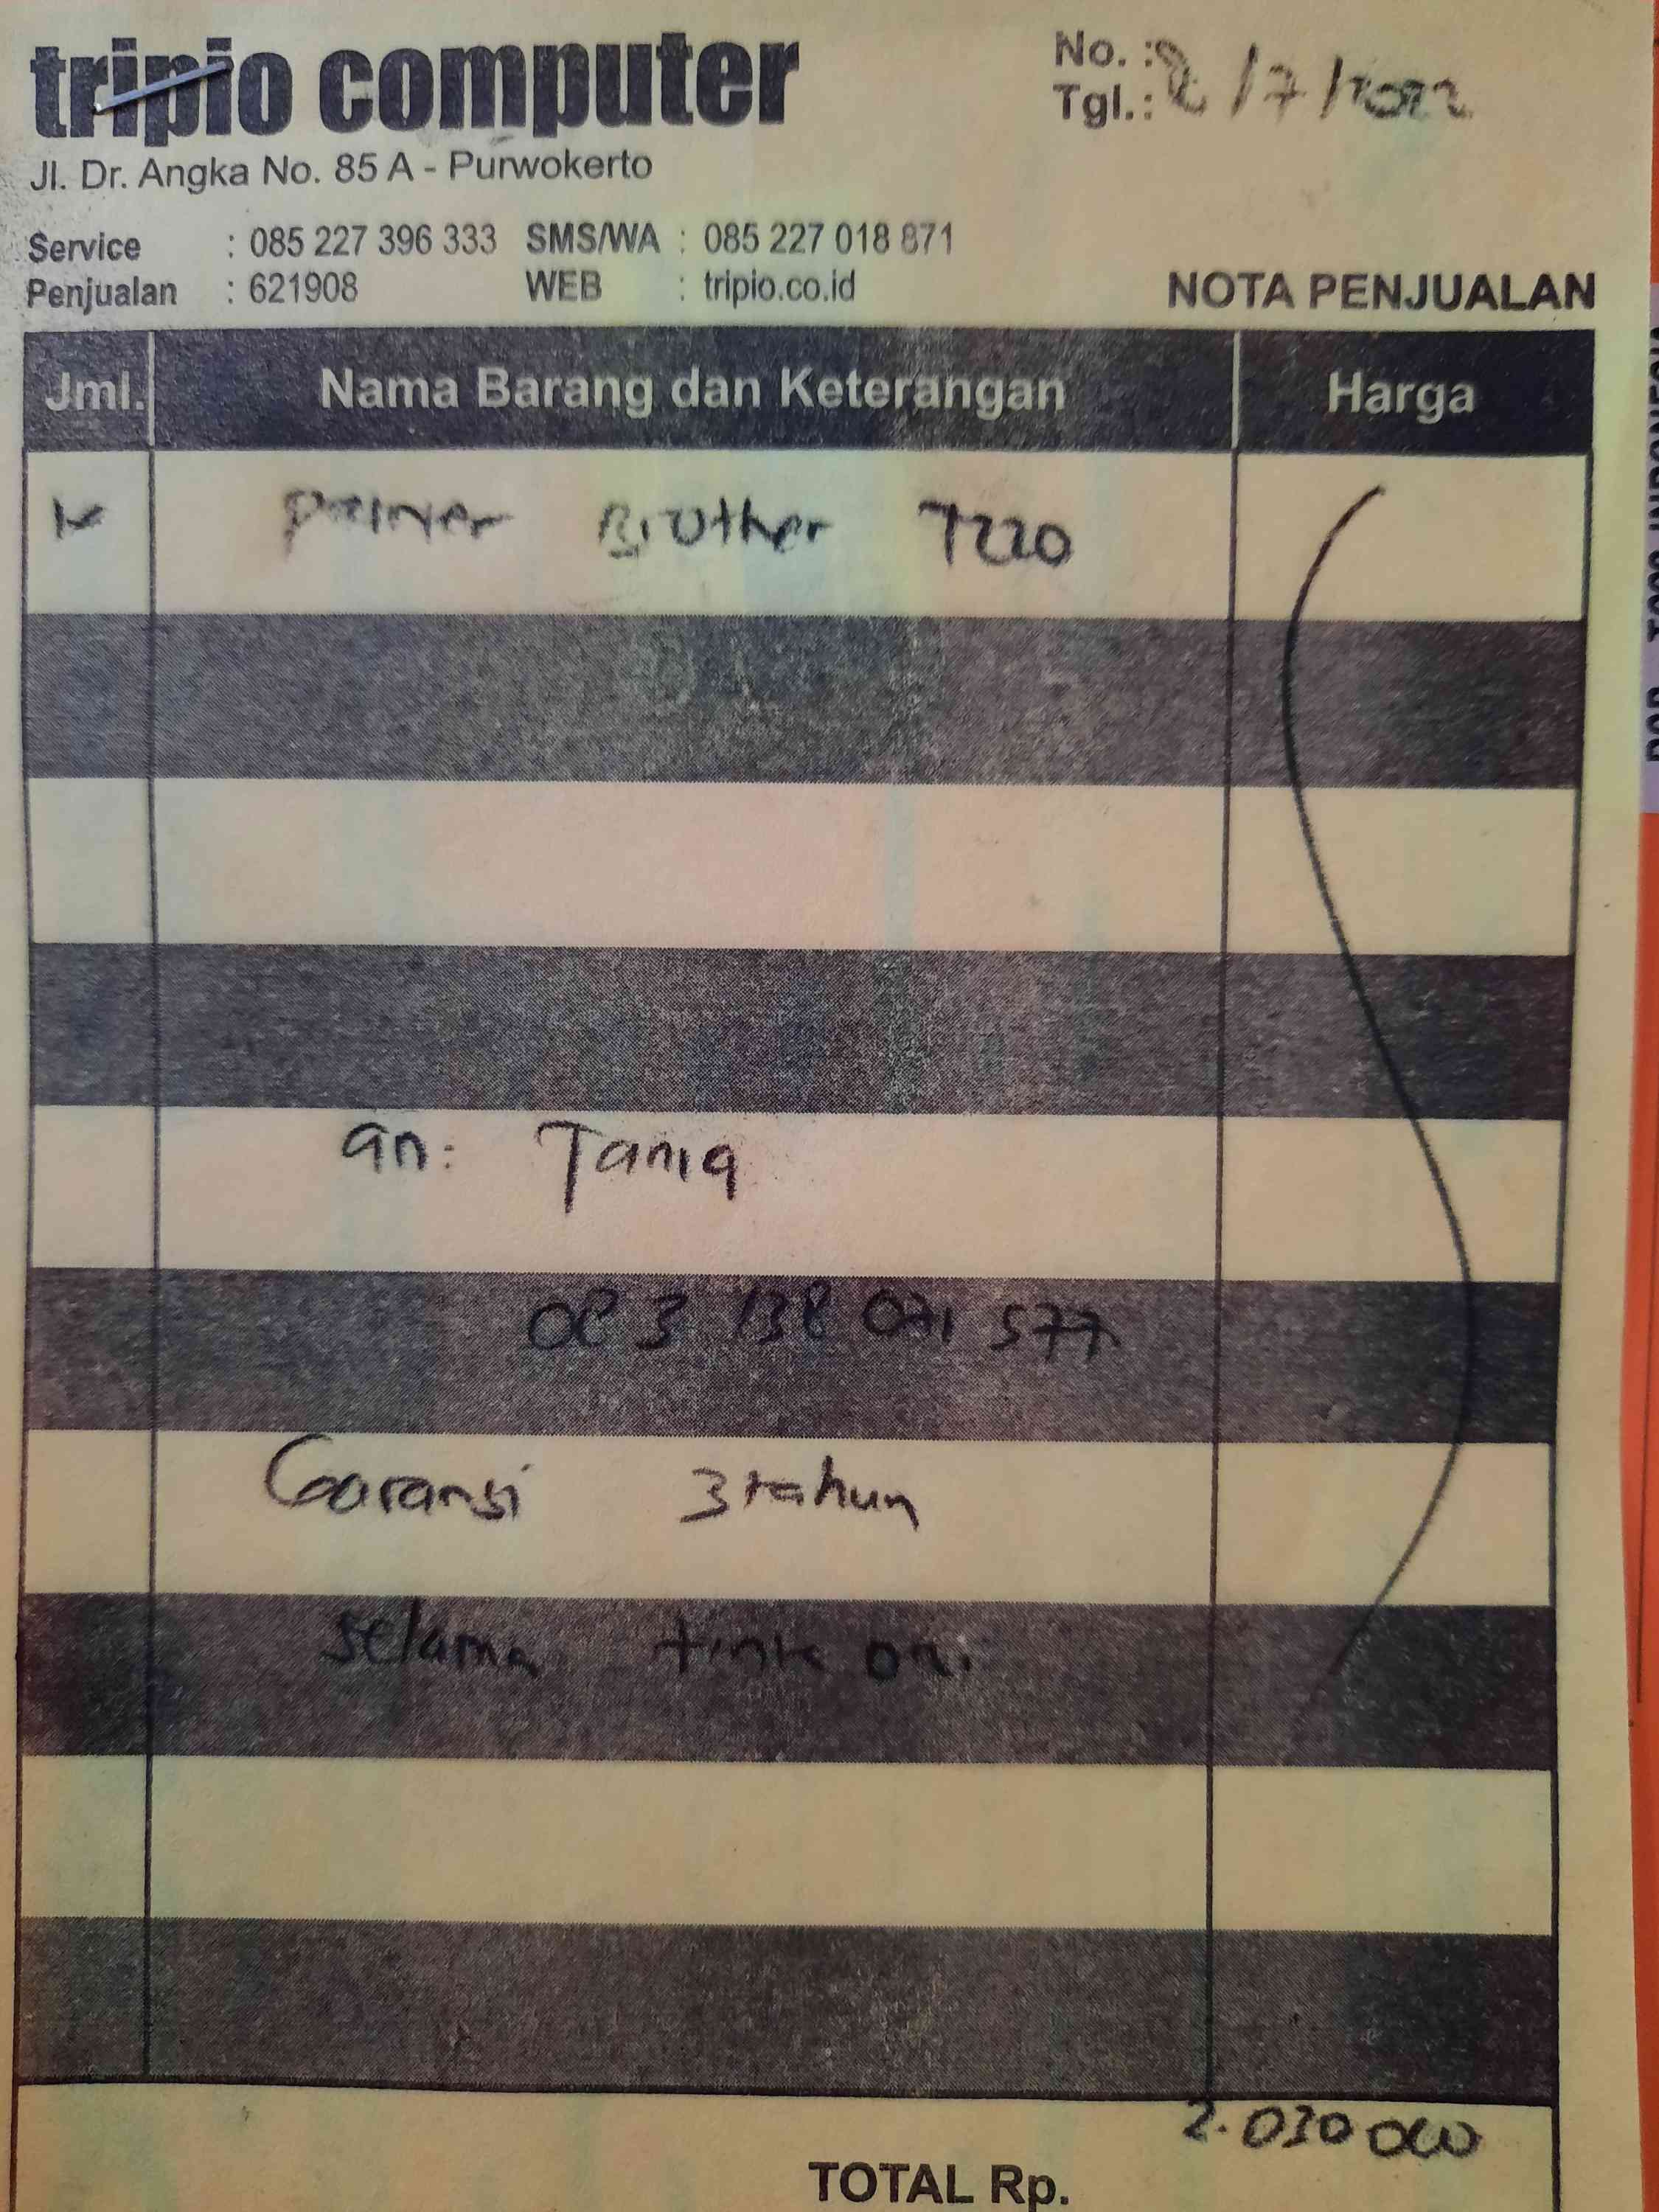 tripio computer
No. :
Tgl.: 8/7/2022
Jl. Dr. Angka No. 85 A - Purwokerto
Service : 085 227 396 333 SMS/WA : 085 227 018 871
Penjualan : 621908 WEB : tripio.co.id
NOTA PENJUALAN
Jml. Nama Barang dan Keterangan Harga
Brother T220
an: Tania
083 138 071 577
Garansi 3 tahun
selama tinta ori
2.030 000
TOTAL Rp.